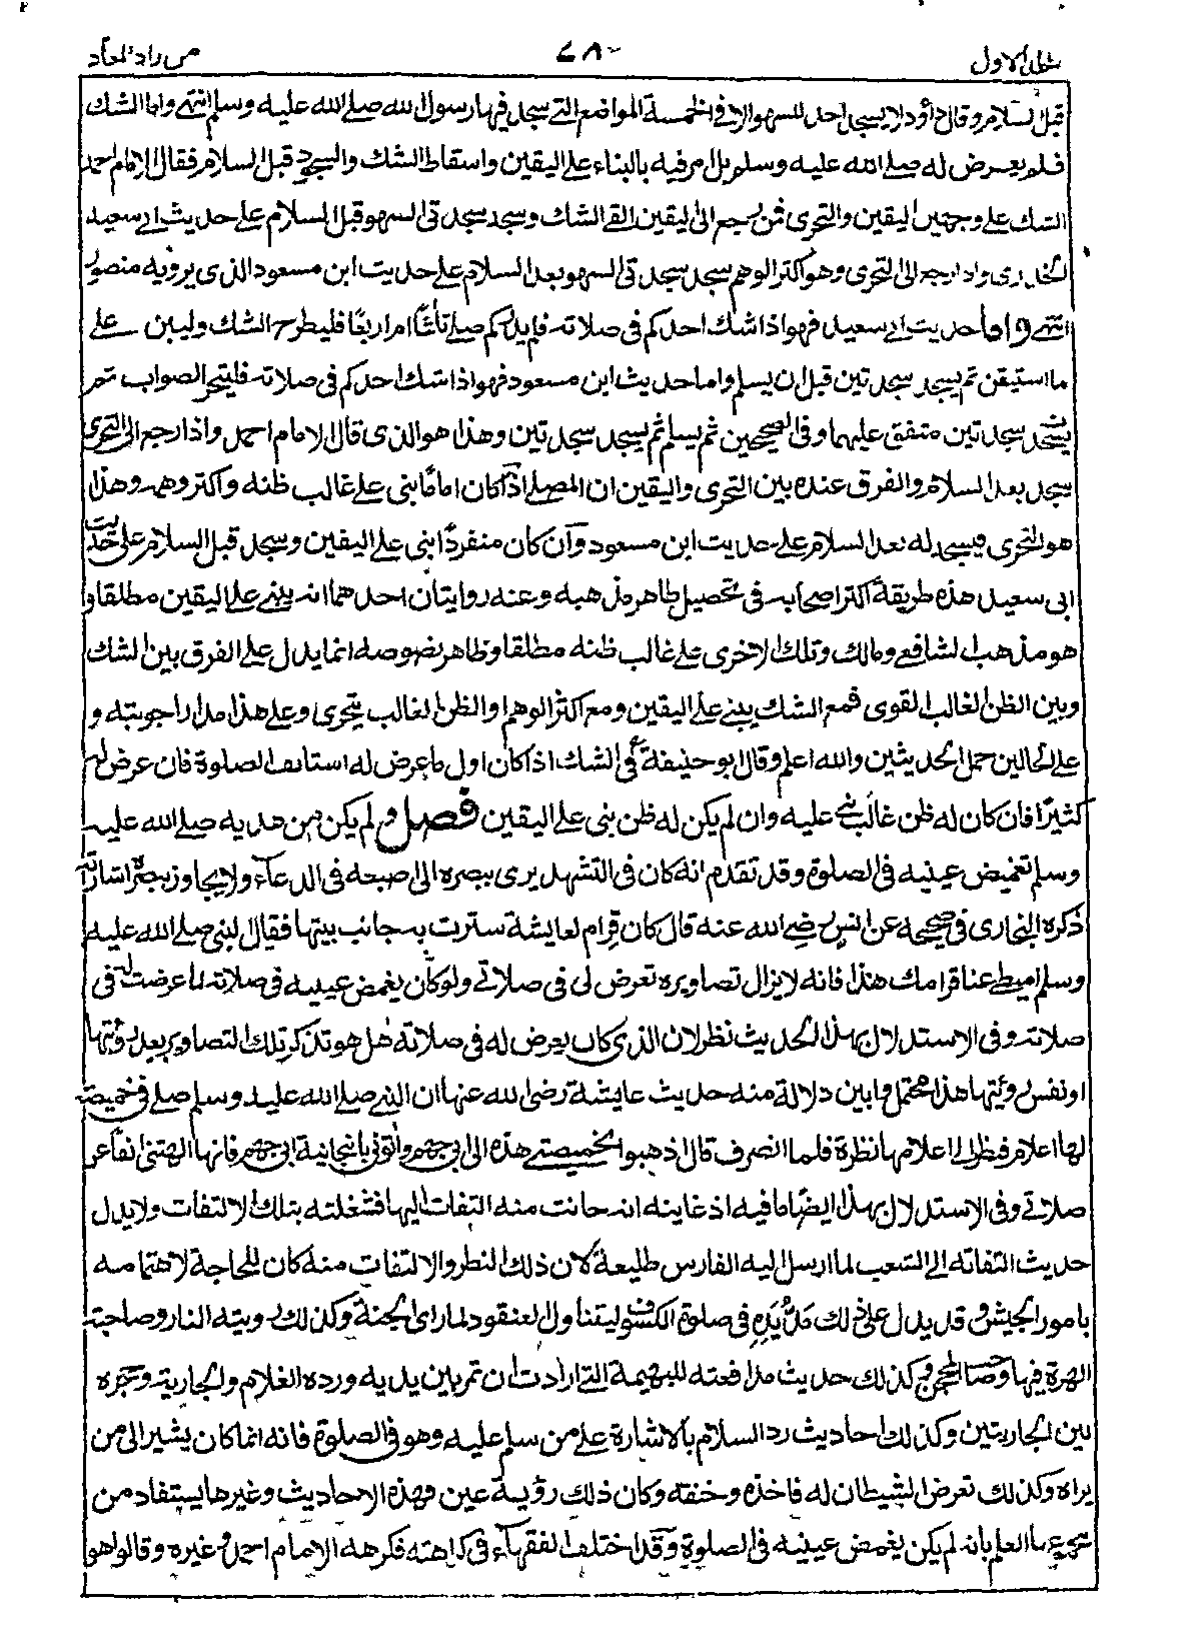 من زاد المعاد
٧٨
قبل السلام وقال داود لا يسجد احد للسهو الا في الخمسة المواضع التي سجد فيها رسول الله صلى الله عليه وسلم انتهى واما الشك
فلم يعرض له صلى الله عليه وسلم بل امر فيه بالبناء على اليقين واسقاط الشك والسجود قبل السلام فقال الامام احمد
الشك على وجهين اليقين والتحري فمن رجع الى اليقين القى الشك وسجد سجدتي السهو قبل السلام على حديث ابي سعيد
الخدري واذا رجع الى التحري وهو اكثر الوهم سجد سجدتي السهو بعد السلام على حديث ابن مسعود الذي يرويه منصور
انتهى واما حديث ابي سعيد فهو اذا شك احدكم في صلاته فلم يدر كم صلى ثلثا ام اربعا فليطرح الشك وليبن على
ما استيقن ثم يسجد سجدتين قبل ان يسلم واما حديث ابن مسعود فهو اذا شك احدكم في صلاته فليتحر الصواب ثم
يسجد سجدتين متفق عليهما وفي الصحيحين ثم يسلم ثم يسجد سجدتين وهذا هو الذي قال الامام احمد واذا رجع الى التحري
سجد بعد السلام والفرق عنده بين التحري واليقين ان المصلي اذا كان اماما بنى على غالب ظنه واكثر وهمه وهذا
هو التحري فيسجد له بعد السلام على حديث ابن مسعود وان كان منفردا بنى على اليقين وسجد قبل السلام على حديث
ابي سعيد هذه طريقة اكثر اصحابه في تحصيل ظاهر مذهبه وعنه روايتان احدهما انه يبني على اليقين مطلقا و
هو مذهب الشافعي ومالك وتلك الاخرى على غالب ظنه مطلقا وظاهر نصوصه انما يدل على الفرق بين الشك
وبين الظن الغالب القوي فمع الشك يبني على اليقين ومع اكثر الوهم او الظن الغالب يتحرى وعلى هذا مدار اجوبته و
على الحالين حمل الحديثين والله اعلم وقال ابو حنيفة في الشك اذا كان اول ما عرض له استانف الصلوة فان عرض له
كثيرا فان كان له ظن غالب بنى عليه وان لم يكن له ظن بنى على اليقين فصل ولم يكن من هديه صلى الله عليه
وسلم تغميض عينيه في الصلوة وقد تقدم انه كان في التشهد يرى ببصره الى اصبعه في الدعاء ولا يجاوز بصره اشارته
ذكره البخاري في صحيحه عن انس رضي الله عنه قال كان قرام لعايشة سترت به جانب بيتها فقال النبي صلى الله عليه
وسلم اميطي عنا قرامك هذا فانه لا يزال تصاويره تعرض لي في صلاتي ولو كان يغمض عينيه في صلاته لما عرضت له في
صلاته وفي الاستدلال بهذا الحديث نظر لان الذي كان يعرض له في صلاته هل هو تذكر تلك التصاوير بعد رؤيتها
او نفس رؤيتها هذا محتمل وابين دلالة منه حديث عايشة رضى الله عنها ان النبي صلى الله عليه وسلم صلى في خميصة
لها اعلام فنظر الى اعلامها نظرة فلما انصرف قال اذهبوا بخميصتي هذه الى ابي جهم واتوني بانبجانية ابي جهم فانها الهتني انفا عن
صلاتي وفي الاستدلال بهذا ايضا ما فيه اذ غايته انه حانت منه التفات اليها فشغلته بتلك الالتفات ولا يدل
حديث التفاته الى الشعب لما ارسل اليه الفارس طليعة لان ذلك النظر والالتفات منه كان للحاجة لاهتمامه
بامور الجيش وقد يدل على ذلك مد يده في صلوة الكسوف ليتناول العنقود لما راى الجنة وكذلك رويته النار وصاحبة
الهرة فيها وصاحب المحجن وكذلك حديث مدافعته للبهيمة التي ارادت ان تمر بين يديه ورده الغلام والجارية وحجزه
بين الجاريتين وكذلك احاديث رد السلام بالاشارة على من سلم عليه وهو في الصلوة فانه انما كان يشير الى من
يراه وكذلك تعرض الشيطان له فاخذه وخنقه وكان ذلك رؤية عين فهذه الاحاديث وغيرها يستفاد من
مجموعها العلم بانه لم يكن يغمض عينيه في الصلوة وقد اختلف الفقهاء في كراهته فكرهه الامام احمد وغيره وقالوا هو